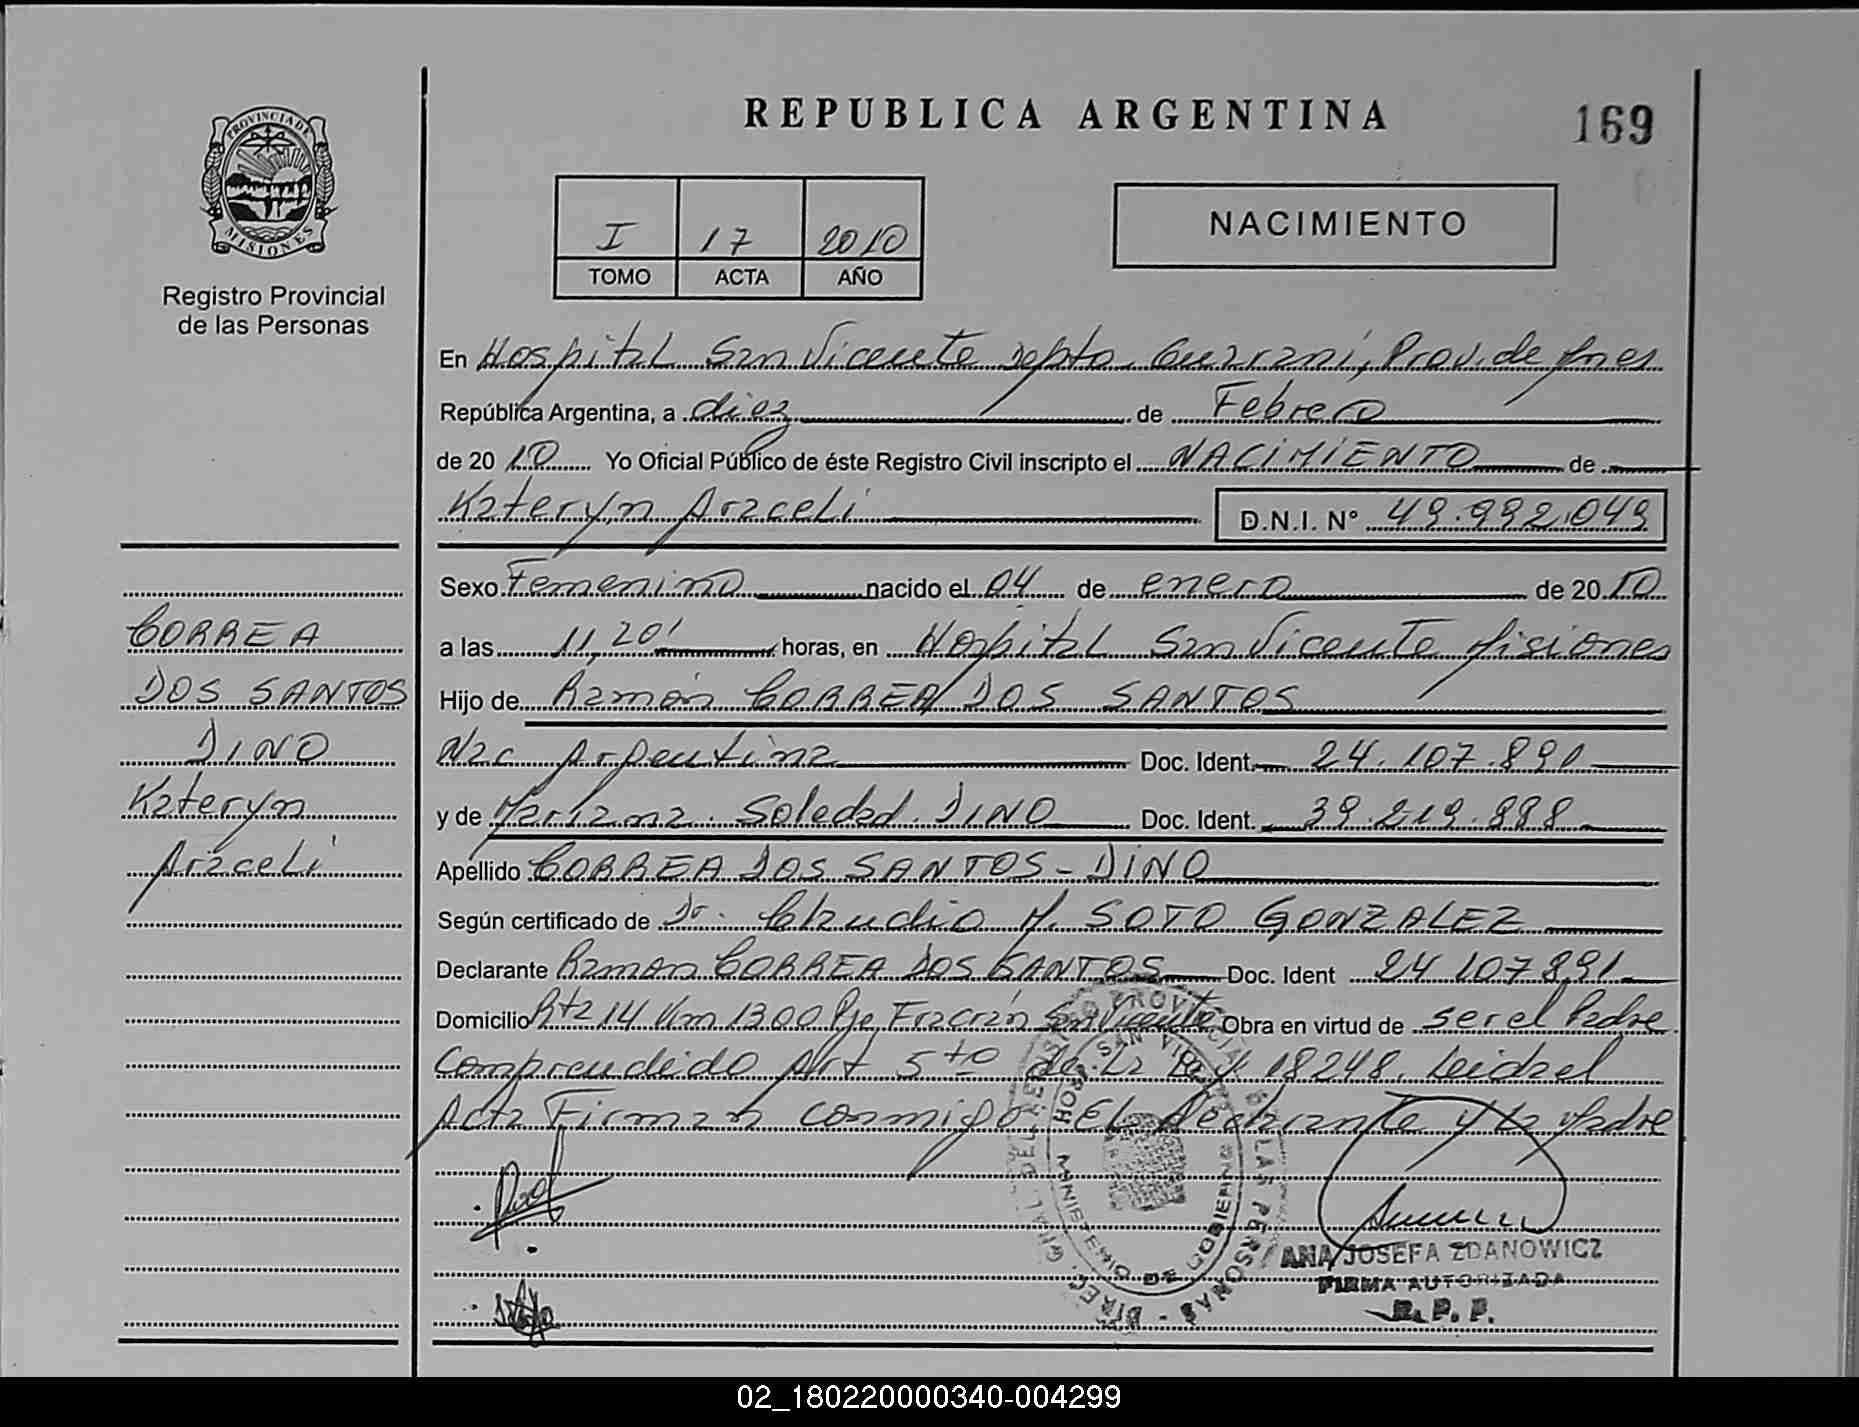 REPUBLICA ARGENTINA
169
PROVINCIA DE
MISIONES
Registro Provincial
de las Personas
I 17 2010
TOMO ACTA AÑO
NACIMIENTO
En Hospital San Vicente Depto. Guaraní, Prov. de Mnes
República Argentina, a diez de Febrero
de 20 10 Yo Oficial Público de éste Registro Civil inscripto el NACIMIENTO de
Kateryn Araceli D.N.I. N° 49.992.049
Sexo Femenino nacido el 04 de enero de 2010
a las 11,20' horas, en Hospital San Vicente Misiones
Hijo de Ramón CORREA DOS SANTOS
Nac Argentina Doc. Ident. 24.107.891
y de Mariana Soledad DINO Doc. Ident. 39.219.888
Apellido CORREA DOS SANTOS - DINO
Según certificado de Dr. Claudio M. SOTO GONZALEZ
Declarante Ramon CORREA DOS SANTOS Doc. Ident 24 107 891
Domicilio Rta 14 Km 1300 Pje Fracrán San Vicente Obra en virtud de ser el Padre
Comprendido Art 5to de la Ley 18248. Leida el
Acta Firman conmigo El Declarante y la Madre
CORREA
DOS SANTOS
DINO
Kateryn
Araceli
ANA JOSEFA ZDANOWICZ
FIRMA AUTORIZADA
R. P. P.
02_180220000340-004299